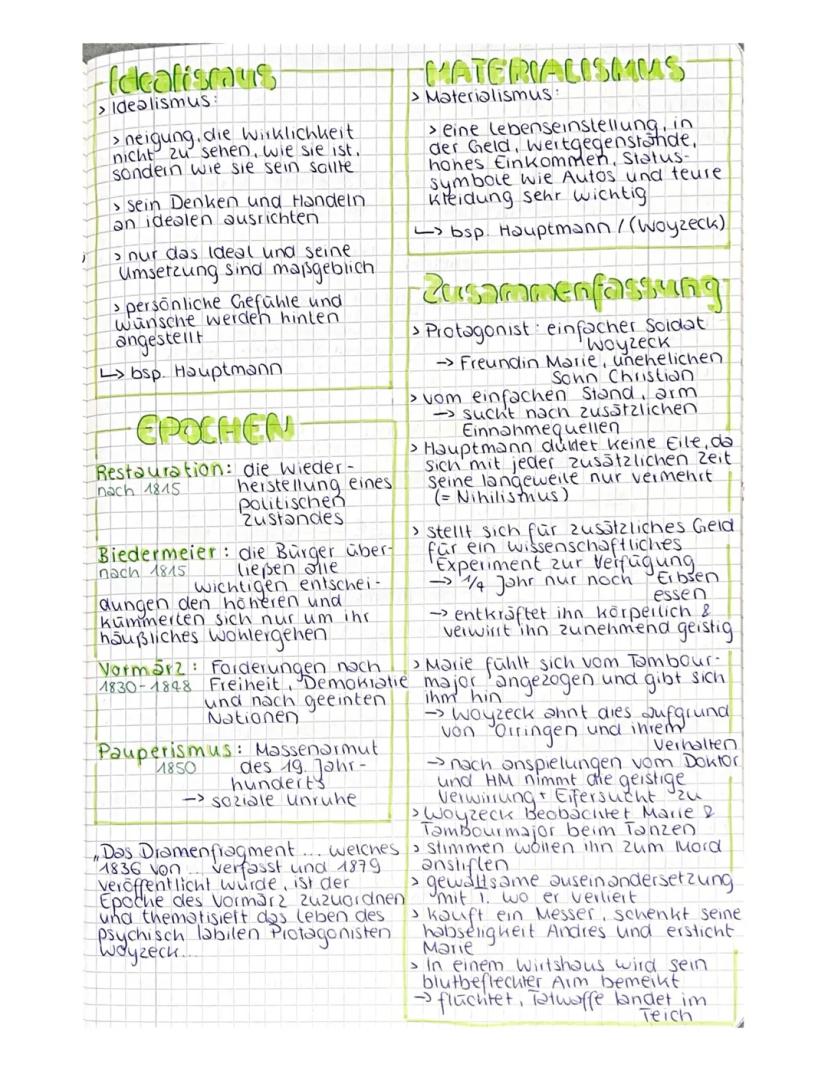 Idealismus
> Idealismus:
> neigung, die Wirklichkeit
nicht zu sehen, wie sie ist,
sondern wie sie sein sollte
> sein Denken und Handeln
an idealen ausrichten
> nur das Ideal und seine
Umsetzung sind maßgeblich
> persönliche Gefühle und
wünsche werden hinten
angestellt
↳ bsp. Hauptmann
EPOCHEN
Restauration: die Wieder-
nach 1815 herstellung eines
politischen
Zustandes
Biedermeier: die Bürger über-
nach 1815 ließen alle
wichtigen entschei-
dungen den höheren und
kümmerten sich nur um ihr
häußliches Wohlergehen
Vormärz: Forderungen nach
1830-1848 Freiheit, Demokratie
und nach geeinten
Nationen
Pauperismus: Massenarmut
1850 des 19. Jahr-
hunderts
-> soziale Unruhe
„Das Dramenfragment ... welches
1836 von ... verfasst und 1879
veröffentlicht wurde, ist der
Epoche des Vormärz zuzuordnen
und thematisiert das Leben des
psychisch labilen Protagonisten
Woyzeck...
MATERIALISMUS
> Materialismus:
> eine Lebenseinstellung, in
der Geld, Wertgegenstände,
hohes Einkommen, Status-
symbole wie Autos und teure
Kleidung sehr wichtig
↳ bsp. Hauptmann / (Woyzeck)
Zusammenfassung
> Protagonist: einfacher Soldat
Woyzeck
-> Freundin Marie, unehelichen
Sohn Christian
> vom einfachen Stand, arm
-> sucht nach zusätzlichen
Einnahmequellen
> Hauptmann duldet keine Eile, da
sich mit jeder zusätzlichen Zeit
seine langeweile nur vermehrt
(= Nihilismus)
> stellt sich für zusätzliches Geld
für ein wissenschaftliches
Experiment zur Verfügung
-> 1/4 Jahr nur noch Erbsen
essen
-> entkräftet ihn körperlich &
verwirrt ihn zunehmend geistig
> Marie fühlt sich vom Tambour-
major angezogen und gibt sich
ihm hin
-> Woyzeck ahnt dies aufgrund
von Orringen und ihrem
Verhalten
-> nach anspielungen vom Doktor
und HM nimmt die geistige
Verwirrung + Eifersucht zu
> Woyzeck beobachtet Marie &
Tambourmajor beim Tanzen
> stimmen wollen ihn zum Mord
anstiften
> gewaltsame auseinandersetzung
mit T. wo er verliert
> kauft ein Messer, schenkt seine
habseligkeit Andres und ersticht
Marie
> In einem Wirtshaus wird sein
blutbefleckter Arm bemerkt
-> flüchtet, Tatwaffe landet im
Teich